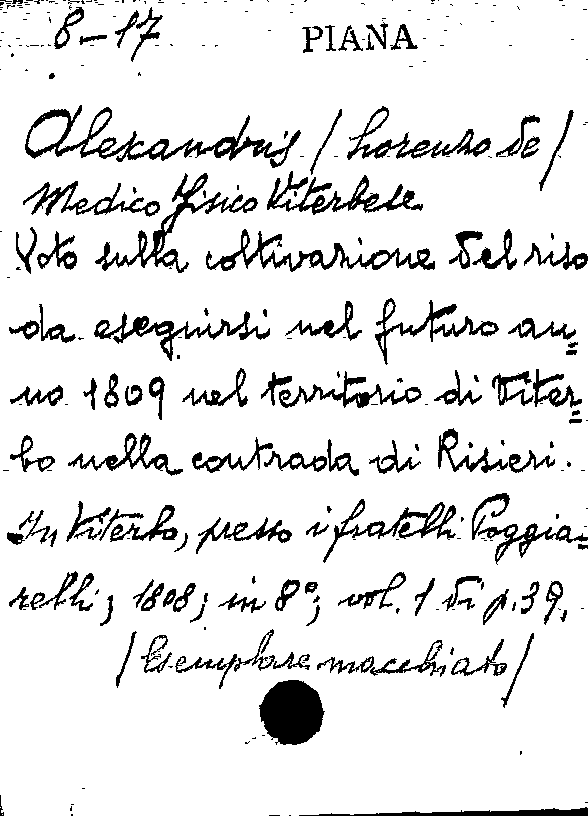 8-17 PIANA
Alexandris / Lorenzo de /
Medico fisico Viterbese
Voto sulla coltivazione del riso
da eseguirsi nel futuro an=
no 1809 nel territorio di Viter=
bo nella contrada di Risieri.
In Viterbo, presso i fratelli Poggia=
relli; 1808; in 8°; vol. 1 di p. 39.
/ Esemplare macchiato /